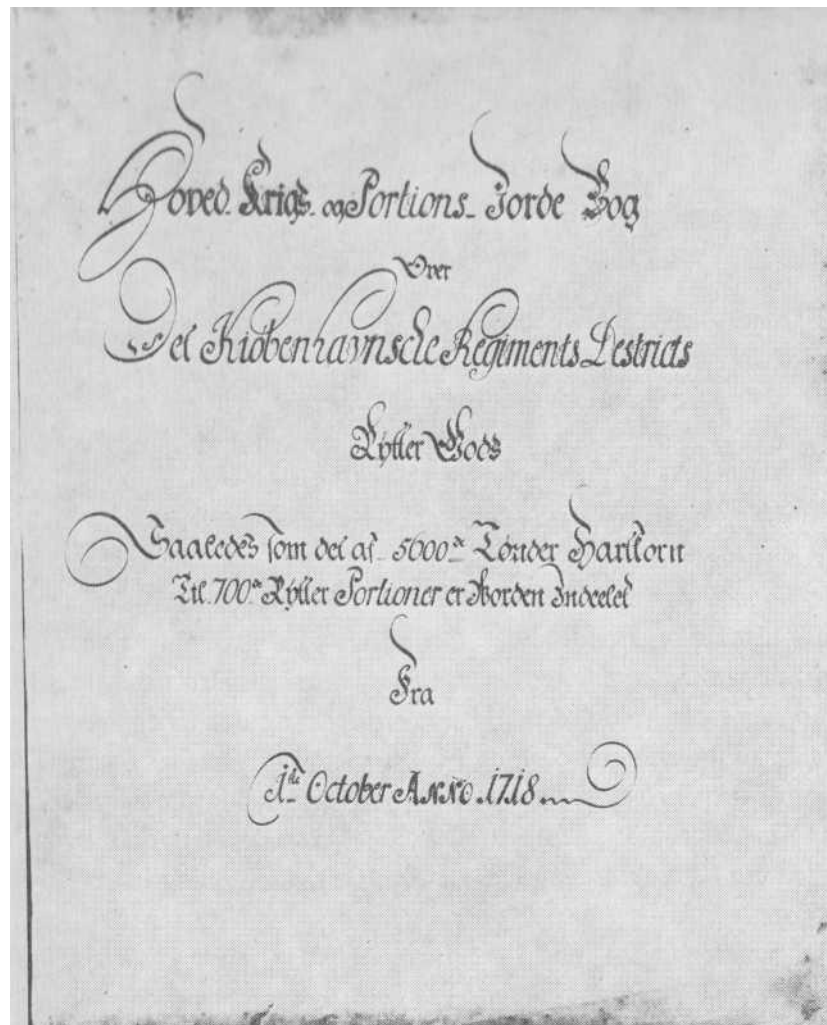 Hoved. Krigs- og Portions- Jorde Bog
Over
Det Kiøbenhavnsche Regiments Destricts
Rytter Gods
Saaledes som det af 5600de Tønder Hartkorn
Til 700de Rytter Portioner er worden Indeelet
Fra
1te October ANNO 1718